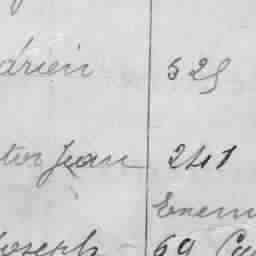 drien 525
tor Jean 241
Exem
Joseph 69 Ca